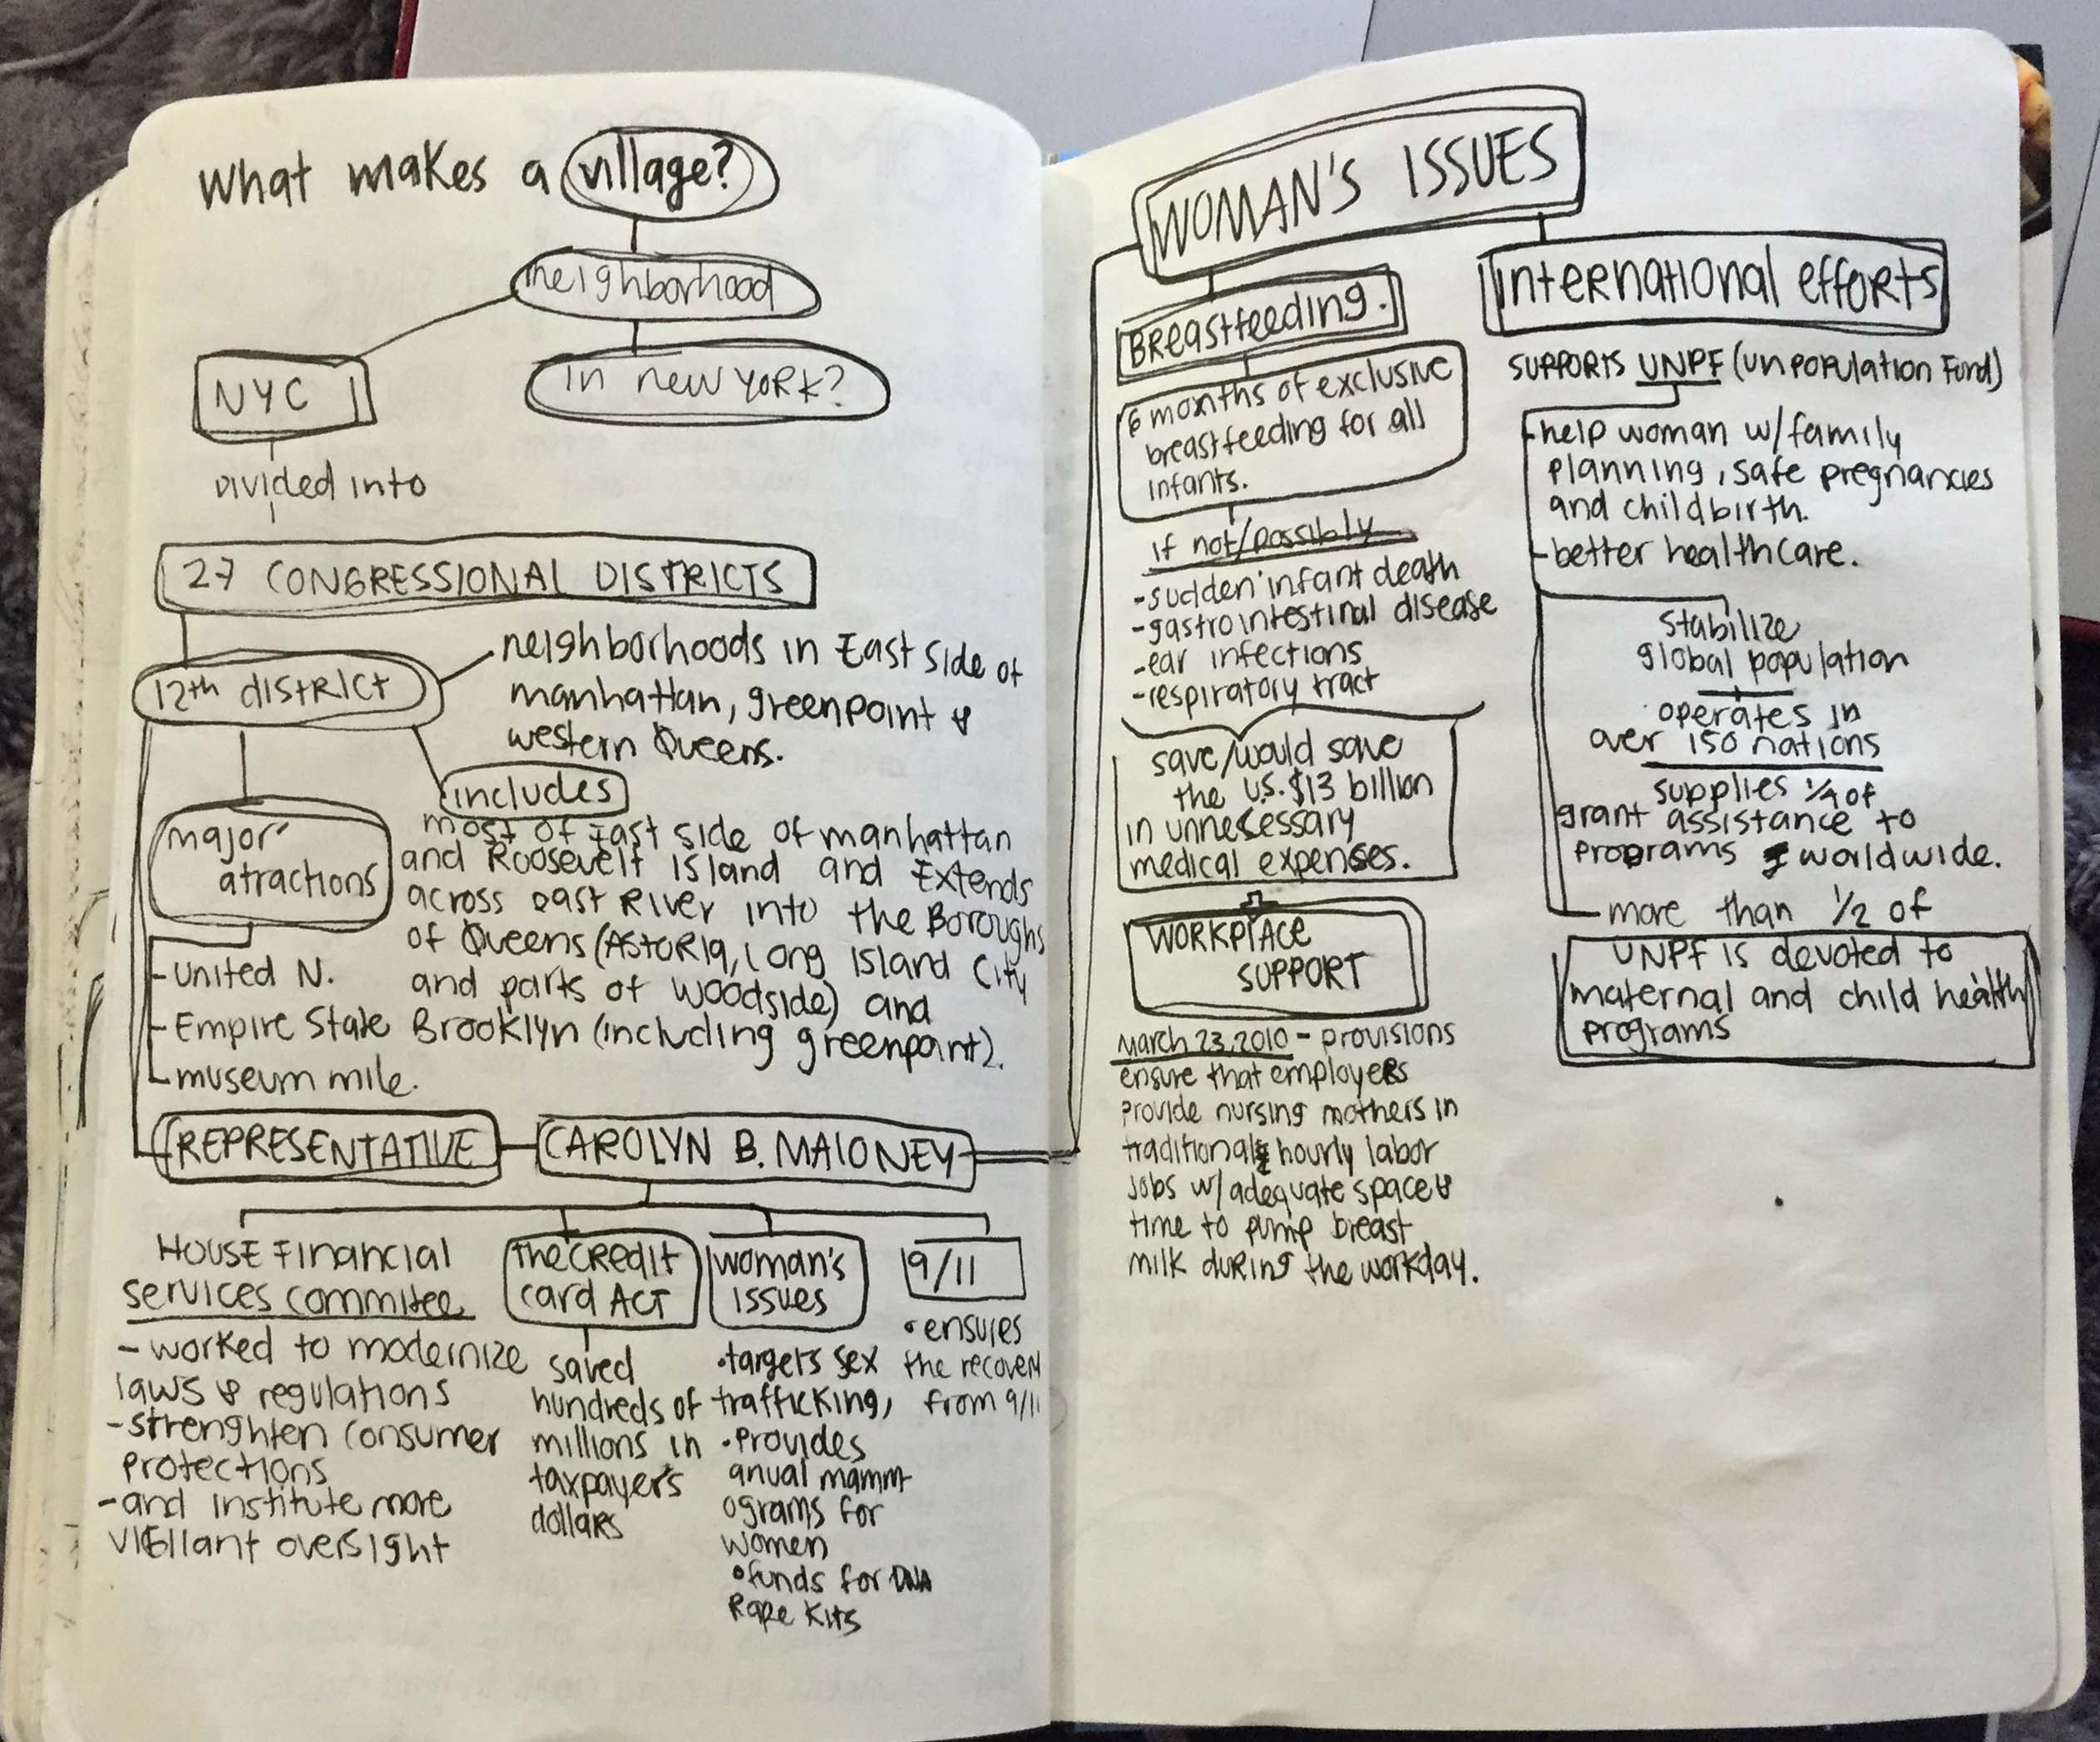 What makes a village?
neighborhood
in new YORK?
NYC
Divided into
27 CONGRESSIONAL DISTRICTS
12th district
neighborhoods in East side of
manhattan, greenpoint &
western Queens.
includes
most of East side of manhattan
and Roosevelt Island and Extends
across east River into the Boroughs
of Queens (Astoria, Long Island City
and parts of woodside) and
Brooklyn (including greenpoint).
major
atractions
- united N.
- Empire State
- museum mile.
REPRESENTATIVE
CAROLYN B. MALONEY
HOUSE Financial
services commitee
- worked to modernize
laws & regulations
- strenghten consumer
protections
- and institute more
vigilant oversight
the credit
card ACT
saved
hundreds of
millions in
taxpayer's
dollars
woman's
issues
• targets sex
trafficking,
• provides
anual mamm
ograms for
women
• funds for DNA
Rape Kits
9/11
• ensures
the recovery
from 9/11
WOMAN'S ISSUES
Breastfeeding.
6 months of exclusive
breastfeeding for all
infants.
if not/possibly
- sudden infant death
- gastrointestinal disease
- ear infections
- respiratory tract
save/would save
the U.S. $13 billion
in unnecessary
medical expenses.
WORKPLACE
SUPPORT
March 23, 2010 - provisions
ensure that employers
provide nursing mothers in
traditional hourly labor
jobs w/adequate space &
time to pump breast
milk during the workday.
International efforts
supports UNPF (un population Fund)
- help woman w/family
planning, safe pregnancies
and childbirth.
- better healthcare.
stabilize
global population
operates in
over 150 nations
supplies 1/4 of
grant assistance to
programs worldwide.
more than 1/2 of
UNPF is devoted to
maternal and child health
programs